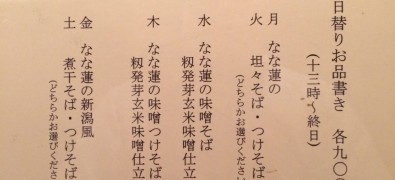 日替りお品書き 各九〇
(十三時〜終日)
月 なな蓮の
火 坦々そば・つけそば
(どちらかお選びください
水 なな蓮の味噌そば
籾発芽玄米味噌仕立
木 なな蓮の味噌つけそば
籾発芽玄米味噌仕立
金 なな蓮の新潟風
土 煮干そば・つけそば
(どちらかお選びくださ